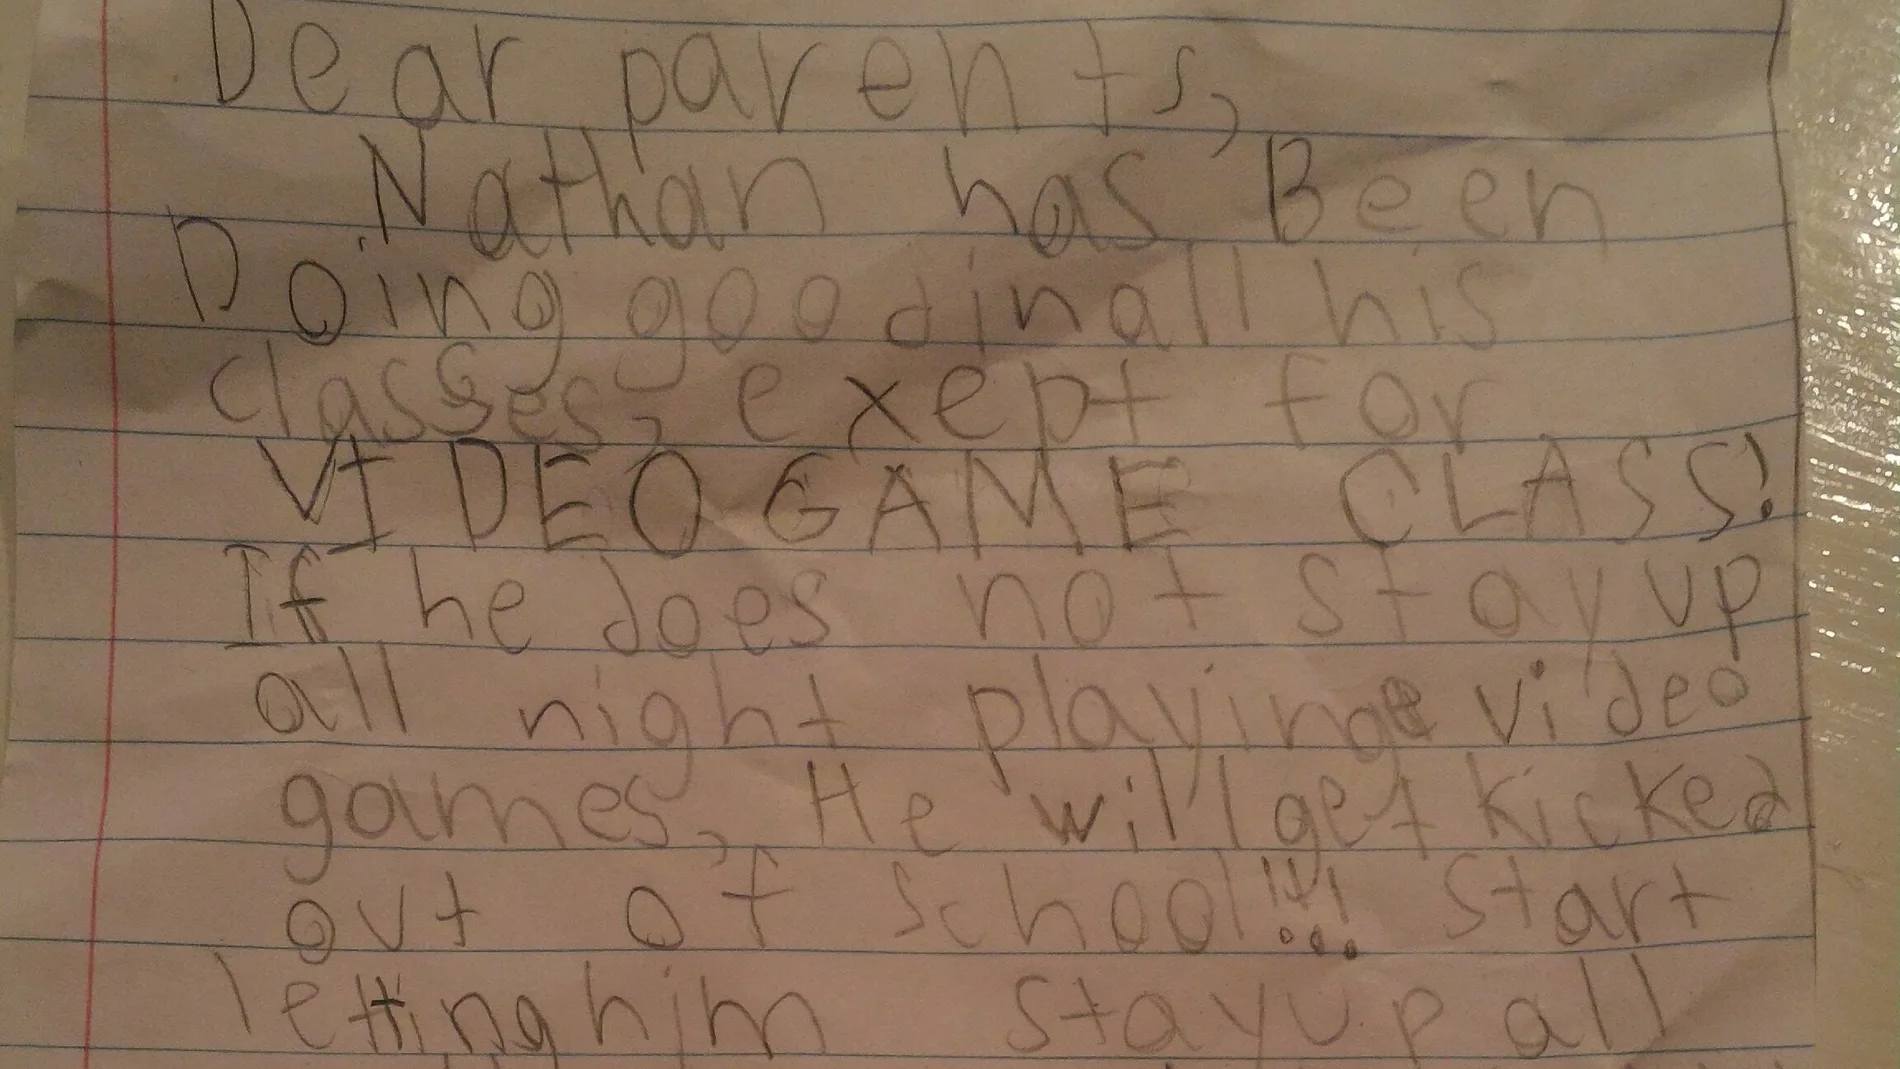 Dear parents,
Nathan has Been
Doing good in all his
classes, exept for
VIDEO GAME CLASS!
If he does not stay up
all night playing video
games, He will get kicked
out of school!!! start
letting him stay up all